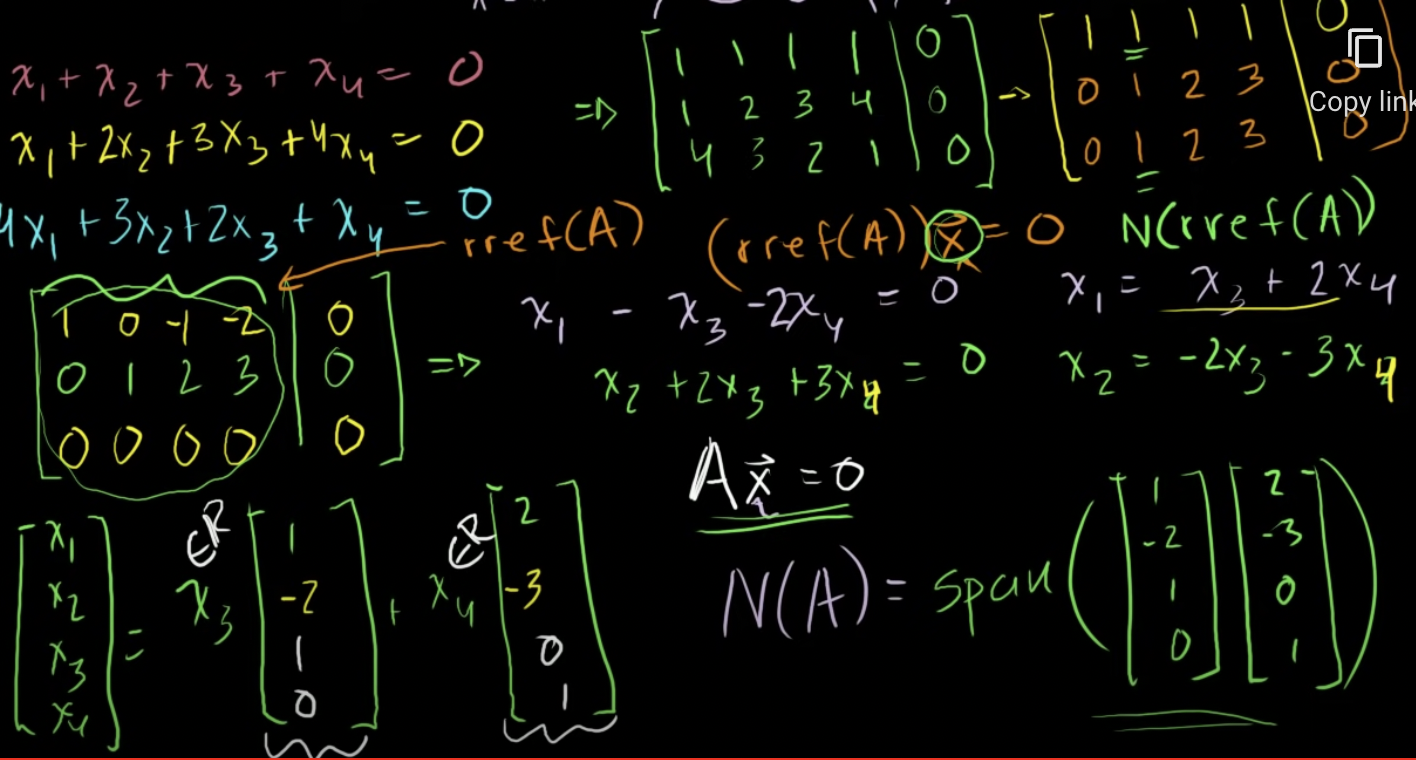 x₁ + x₂ + x₃ + x₄ = 0
x₁ + 2x₂ + 3x₃ + 4x₄ = 0
4x₁ + 3x₂ + 2x₃ + x₄ = 0
⇒ [ 1 1 1 1 | 0
1 2 3 4 | 0
4 3 2 1 | 0 ]
→ [ 1 1 1 1 | 0
0 1 2 3 | 0
0 1 2 3 | 0 ]
Copy link
rref(A)
(rref(A)) x⃗ = 0
N(rref(A))
[ 1 0 -1 -2 | 0
0 1 2 3 | 0
0 0 0 0 | 0 ]
⇒ x₁ - x₃ - 2x₄ = 0
x₂ + 2x₃ + 3x₄ = 0
x₁ = x₃ + 2x₄
x₂ = -2x₃ - 3x₄
Ax⃗ = 0
[ x₁ x₂ x₃ x₄ ] = x₃ [ 1 -2 1 0 ] + x₄ [ 2 -3 0 1 ]
∈R ∈R
N(A) = span ( [ 1 -2 1 0 ] [ 2 -3 0 1 ] )